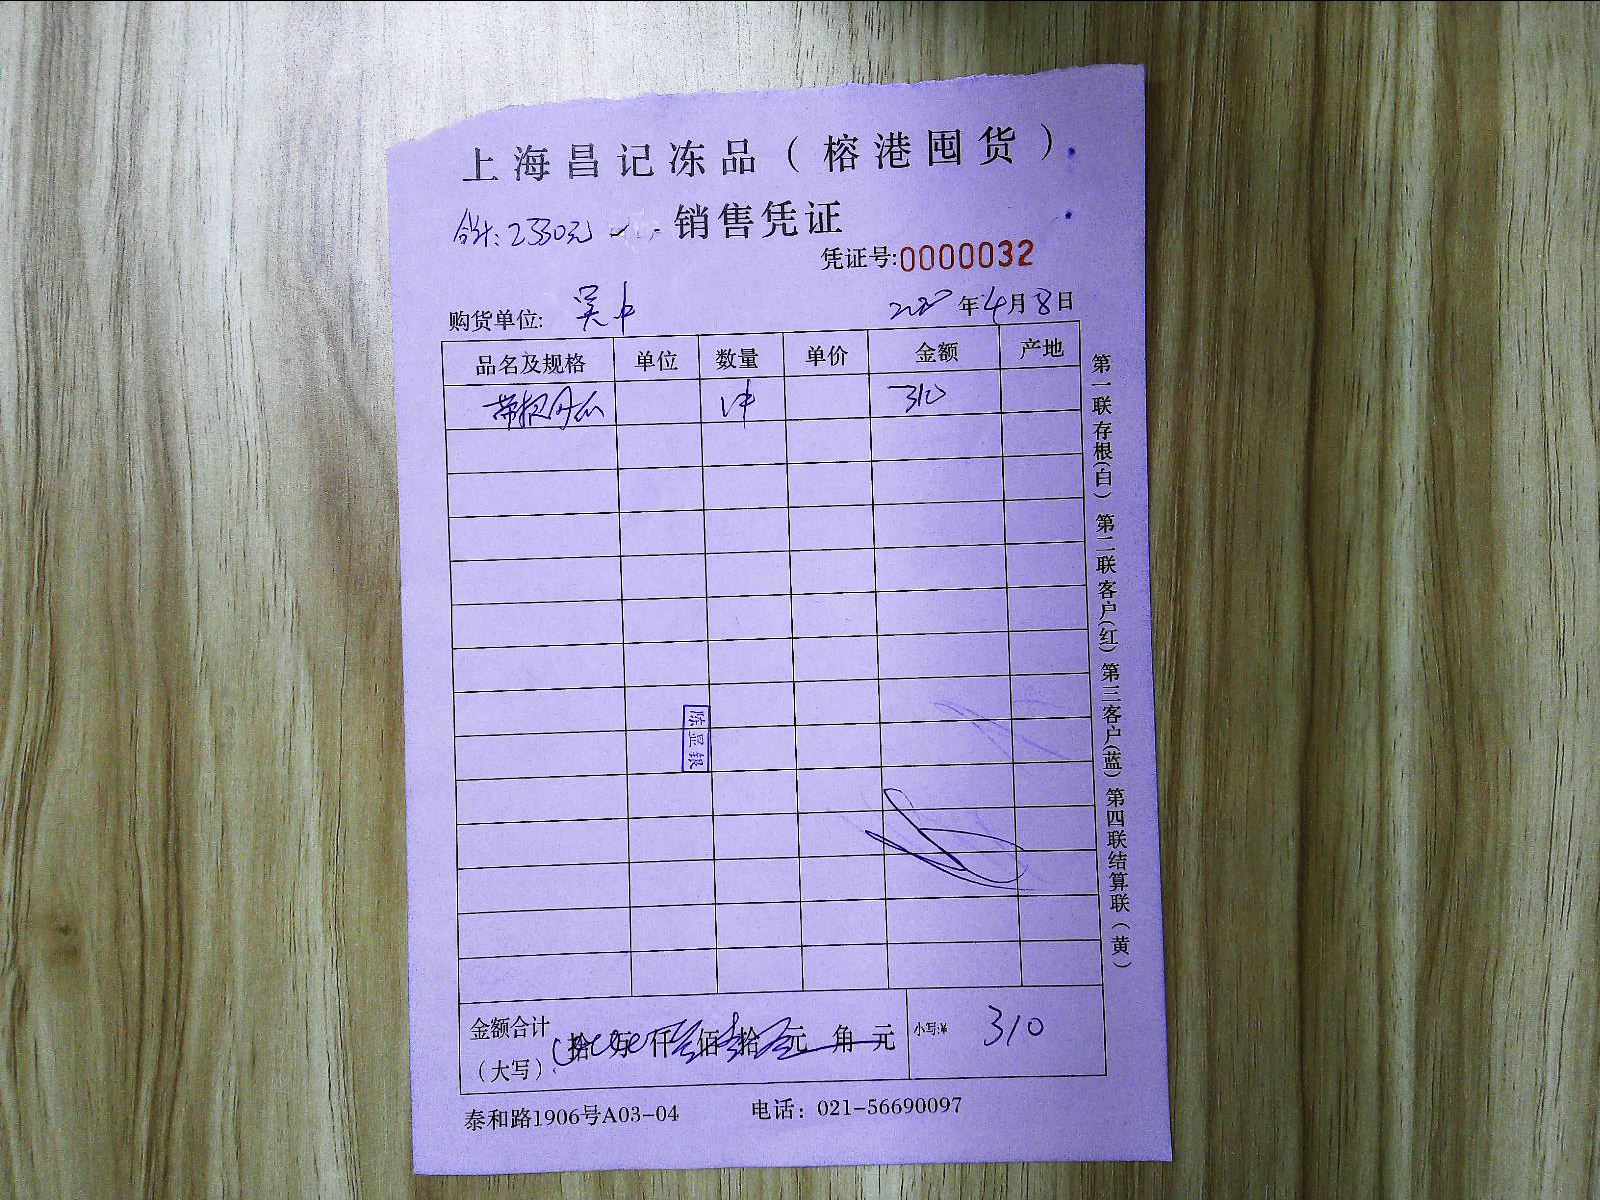 上海昌记冻品（榕港囤货）
合计：2330元 销售凭证
凭证号:0000032
购货单位: 吴中 2020年4月8日
品名及规格 单位 数量 单价 金额 产地
1件 310
陈显银
金额合计（大写） 拾 万 仟 佰 拾 元 角 元 小写:¥ 310
泰和路1906号A03-04 电话：021-56690097
第一联存根(白) 第二联客户(红) 第三客户(蓝) 第四联结算联(黄)